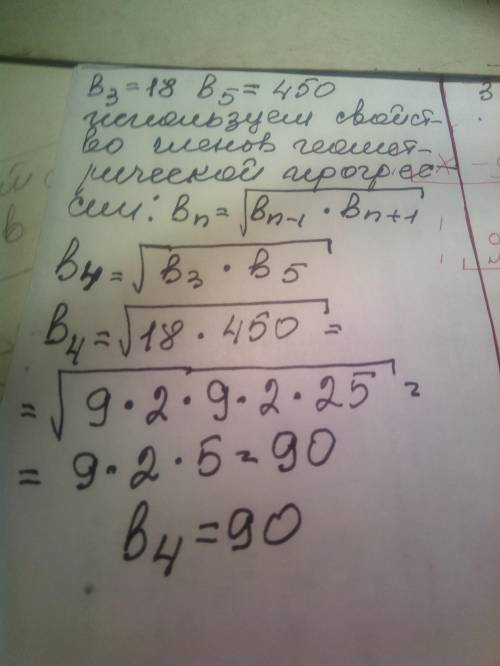 в₃=18 в₅=450
используем свойст-
во членов геомет-
рической прогрес-
сии: вₙ=√вₙ₋₁·вₙ₊₁
в₄=√в₃·в₅
в₄=√18·450=
=√9·2·9·2·25=
=9·2·5=90
в₄=90
3